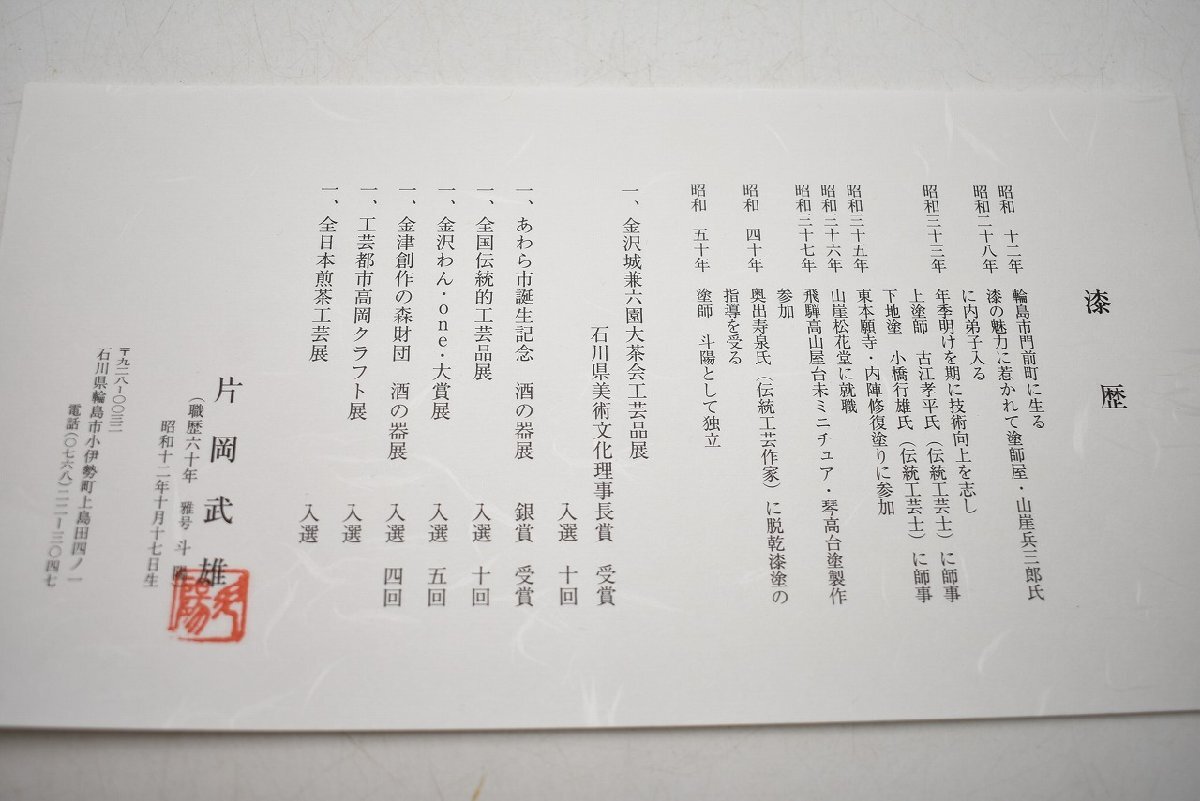 漆 歴
昭和 十二年 輪島市門前町に生る
昭和二十八年 漆の魅力に惹かれて塗師屋・山崖兵三郎氏
に内弟子入る
昭和三十三年 年季明けを期に技術向上を志し
上塗師 古江孝平氏(伝統工芸士)に師事
下地塗 小橋行雄氏(伝統工芸士)に師事
昭和三十五年 東本願寺・内陣修復塗りに参加
昭和三十六年 山崖松花堂に就職
昭和三十七年 飛騨高山屋台未ミニチュア・琴高台塗製作
参加
昭和 四十年 奥出寿泉氏(伝統工芸作家)に脱乾漆塗の
指導を受る
昭和 五十年 塗師 斗陽として独立
一、金沢城兼六園大茶会工芸品展
石川県美術文化理事長賞 受賞
入選 十回
一、あわら市誕生記念 酒の器展 銀賞 受賞
一、全国伝統的工芸品展 入選 十回
一、金沢わん・one・大賞展 入選 五回
一、金津創作の森財団 酒の器展 入選 四回
一、工芸都市高岡クラフト展 入選
一、全日本煎茶工芸展 入選
片岡武雄
(職歴六十年 雅号 斗陽
昭和十二年十月十七日生
〒九二八-〇〇三二
石川県輪島市小伊勢町上島田四ノ一
電話(〇七六八)二二-三〇四七